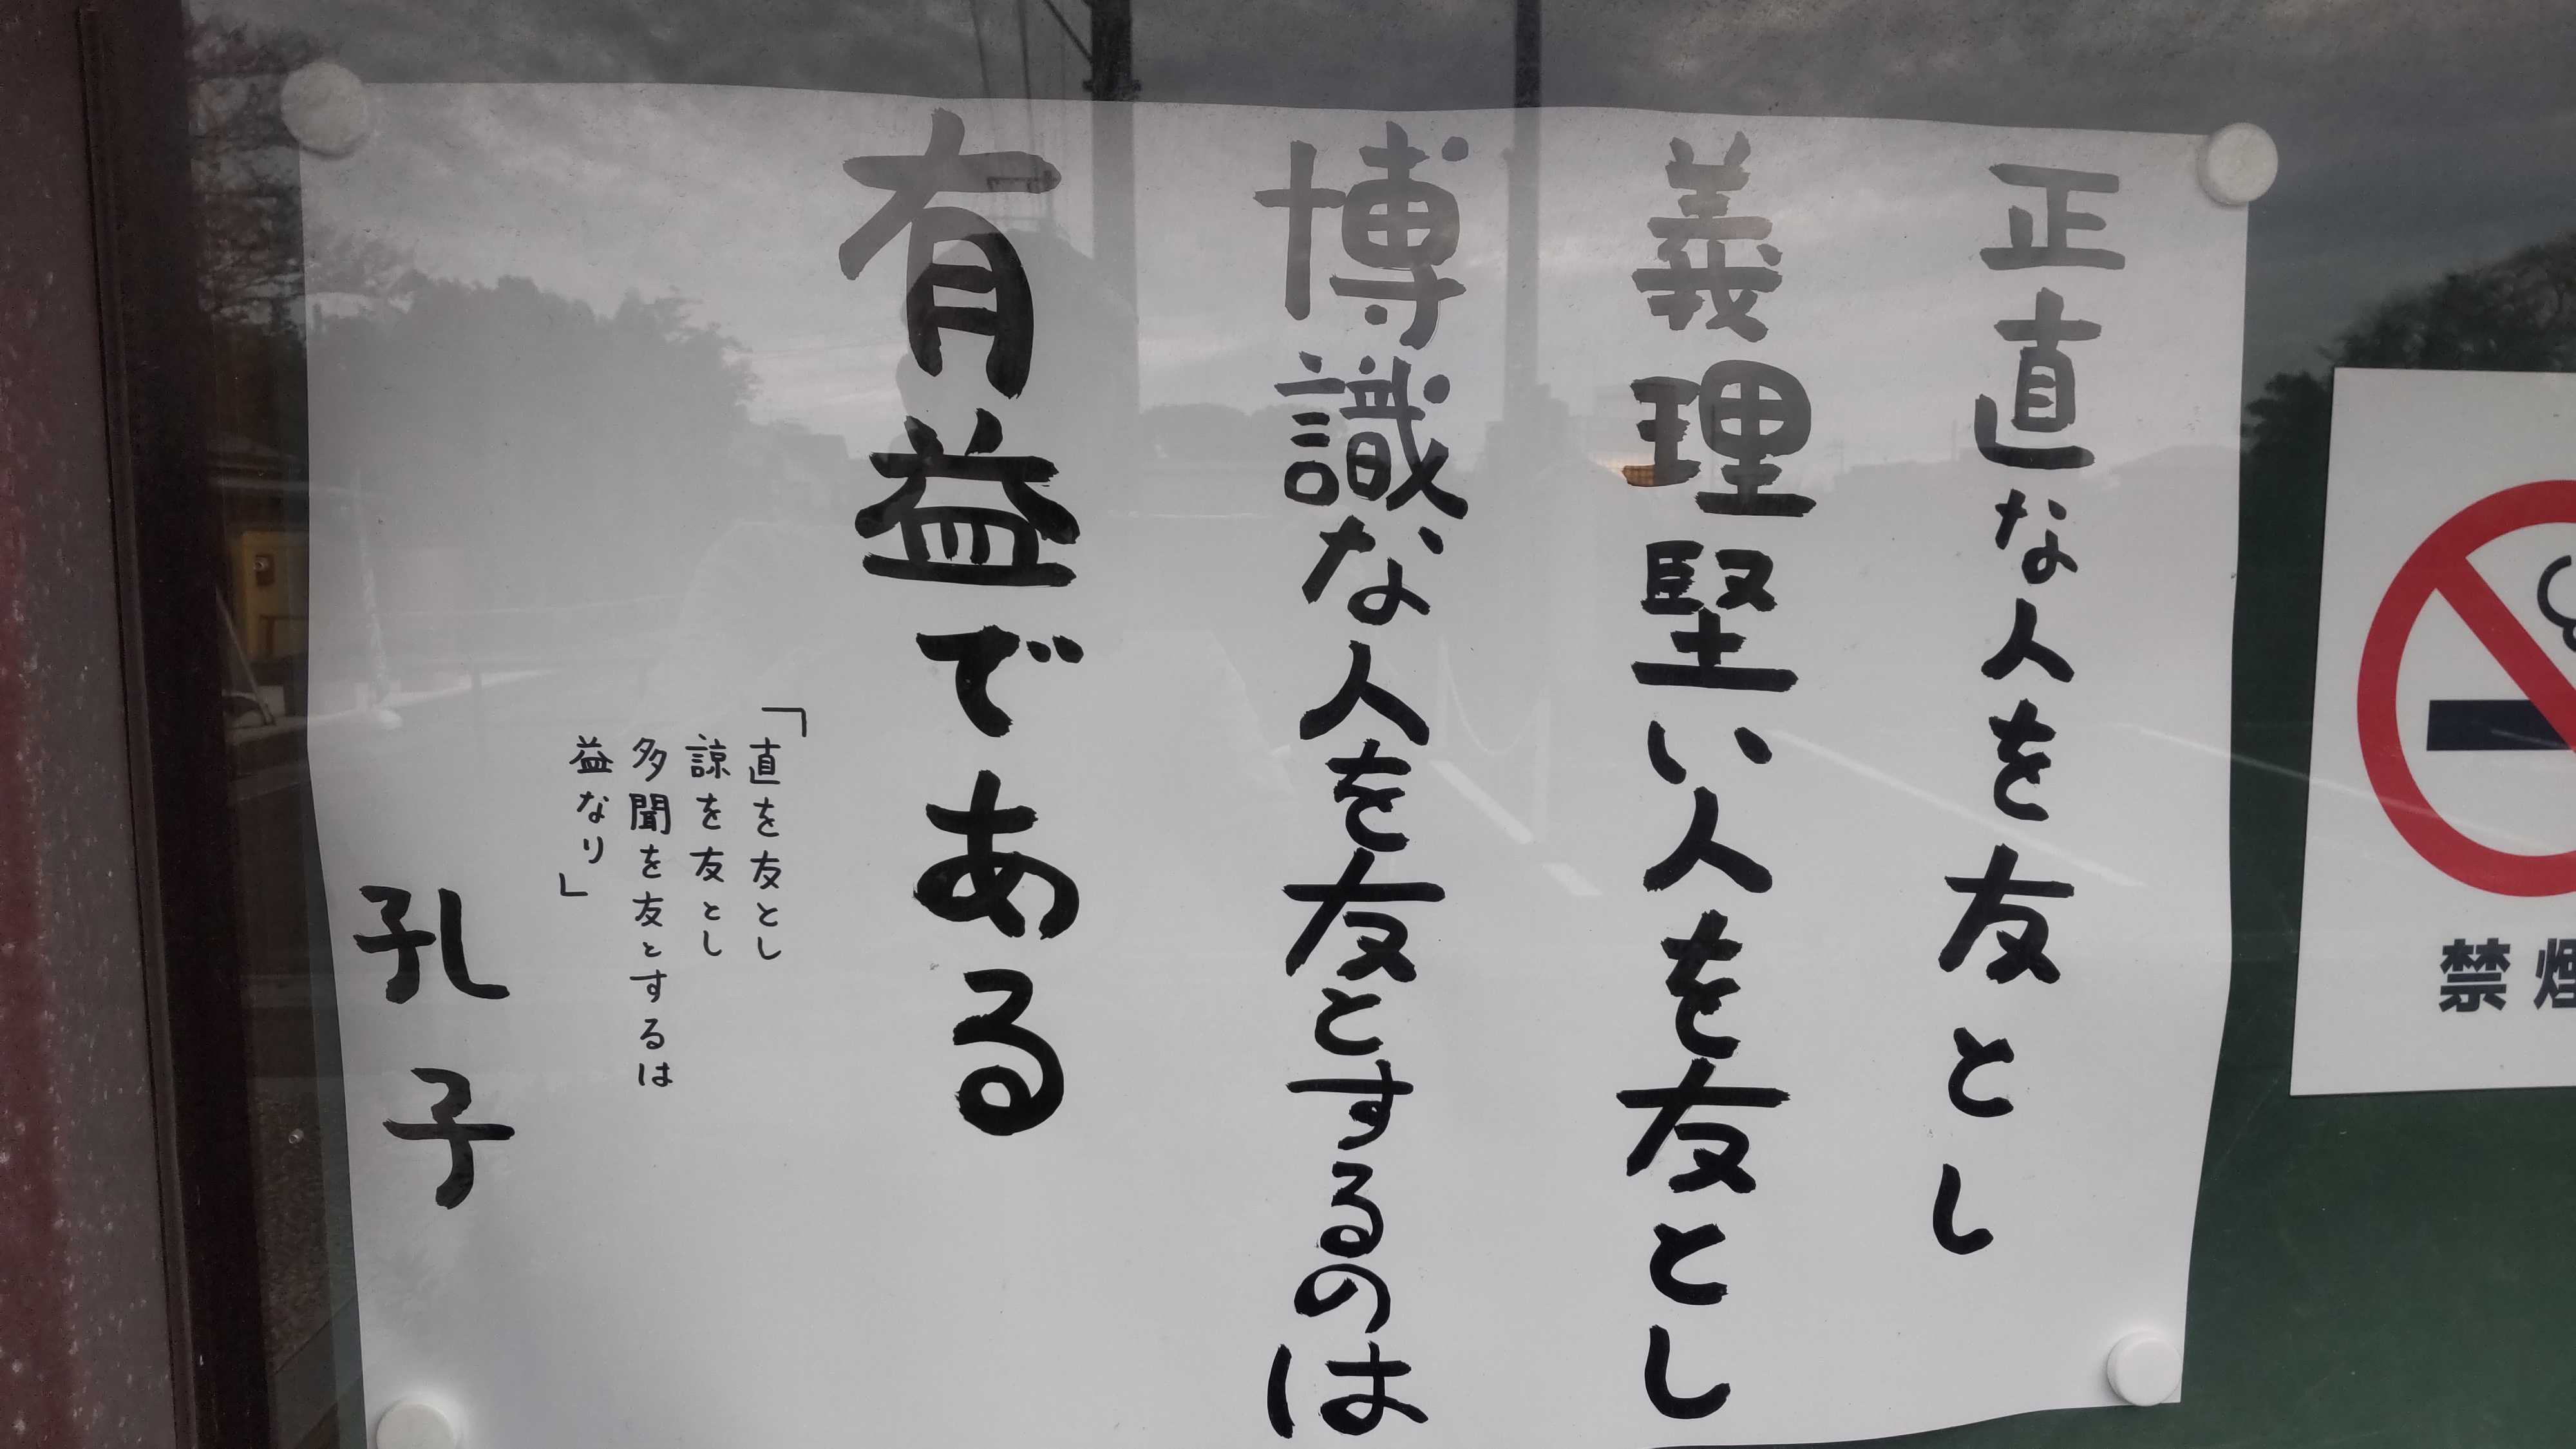 正直な人を友とし
義理堅い人を友とし
博識な人を友とするのは
有益である
「直を友とし
諒を友とし
多聞を友とするは
益なり」
孔子
禁煙